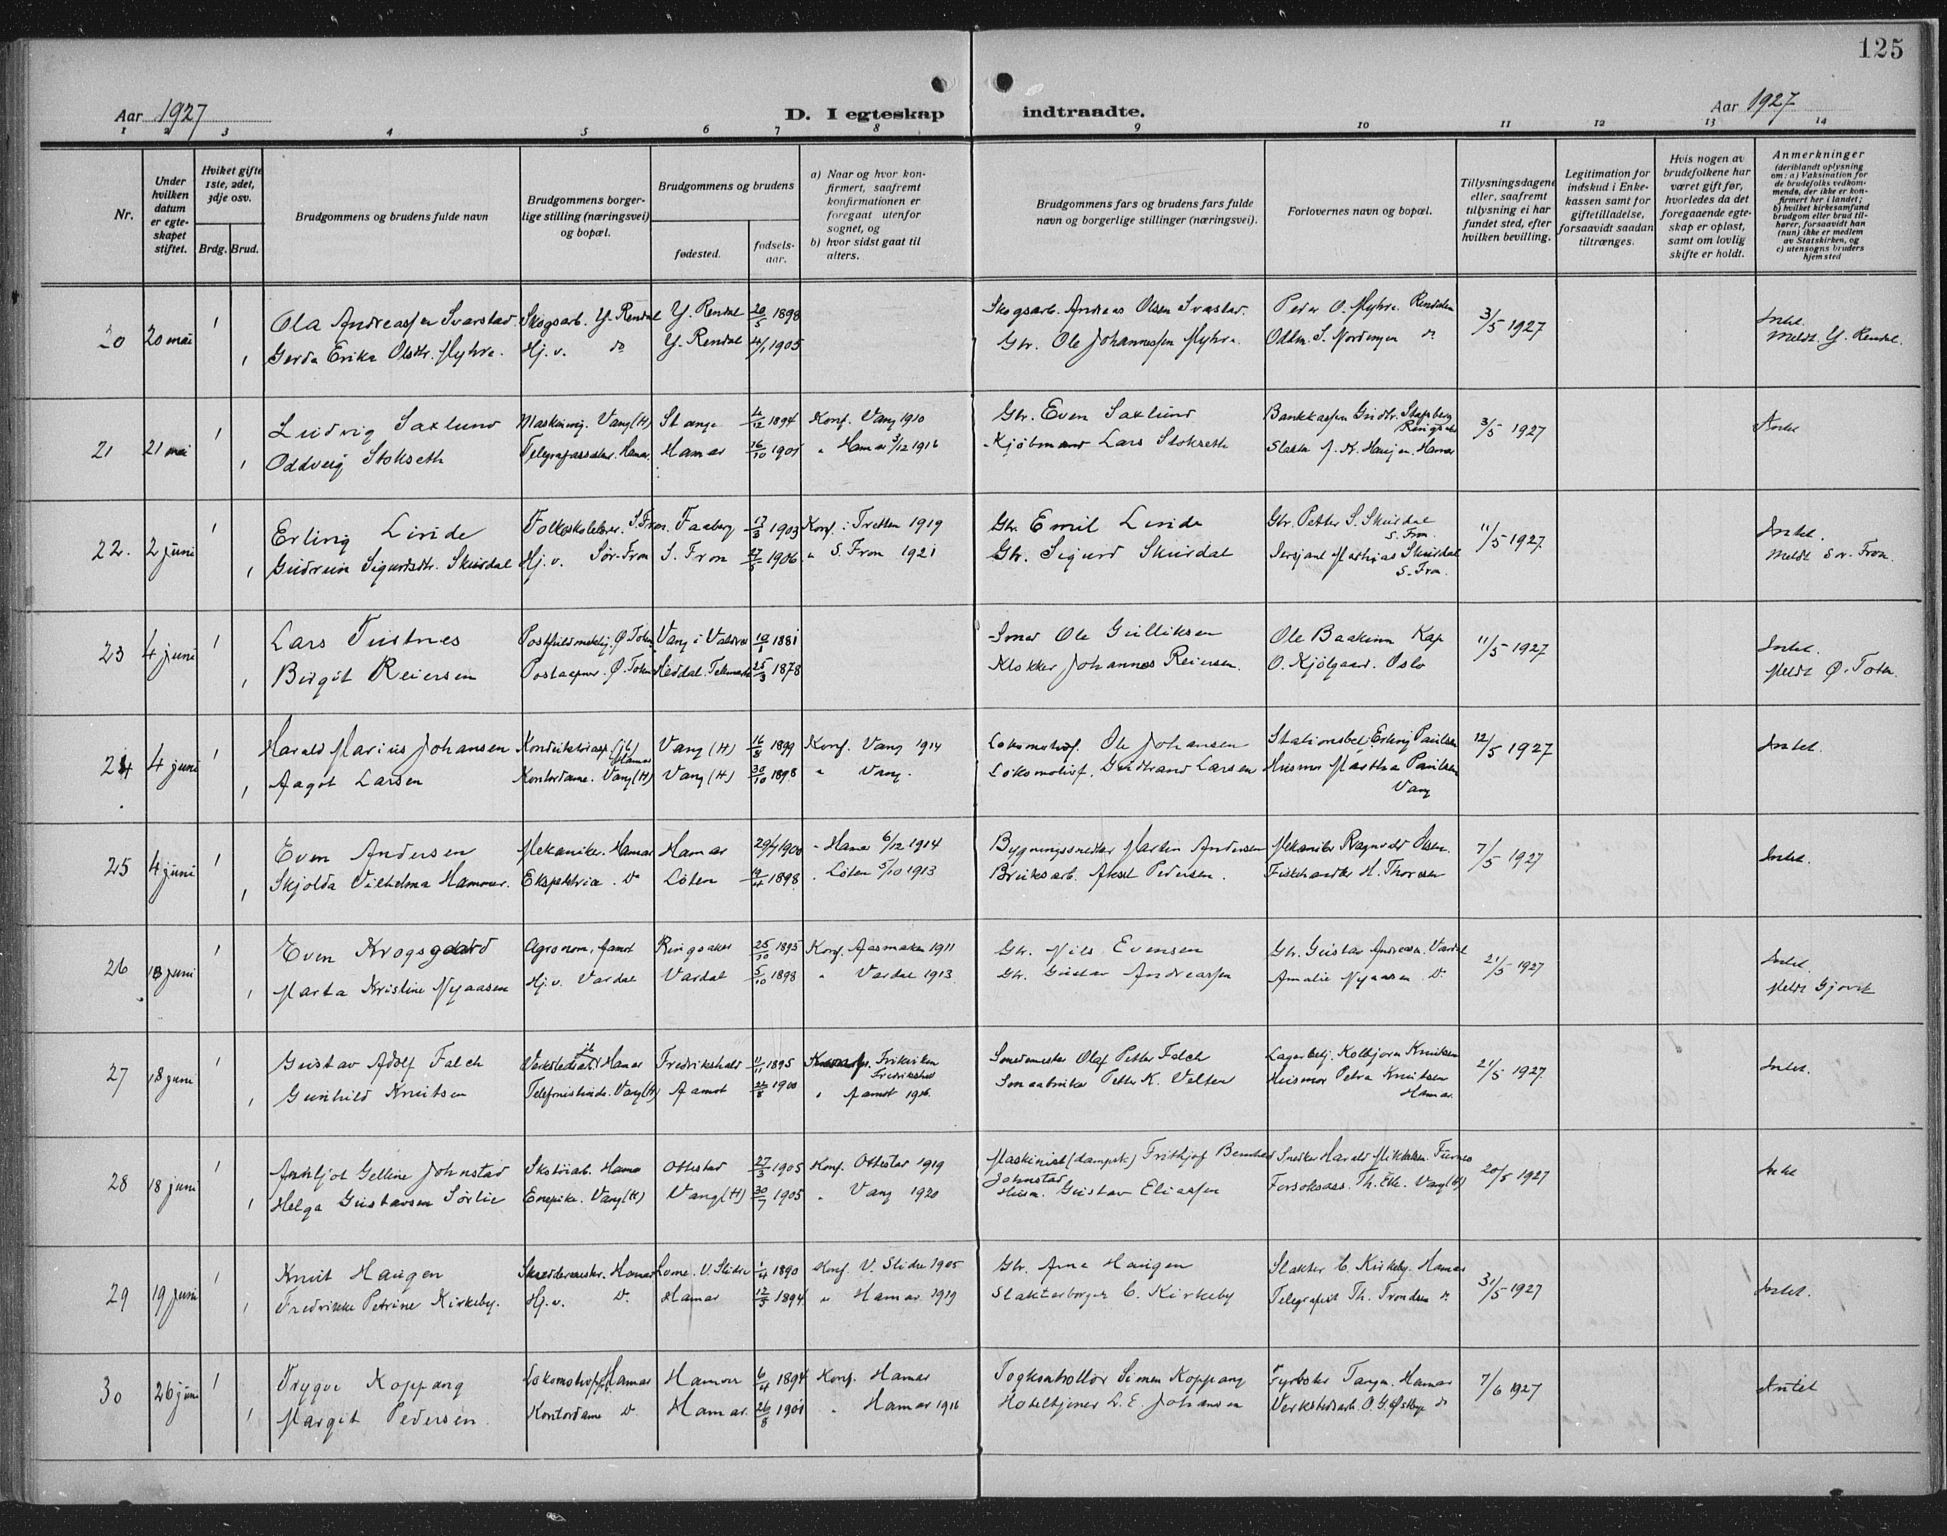 125
Aar 1927 D. I egteskap indtraadte. Aar 1927
1 2 3 4 5 6 7 8 9 10 11 12 13 14
Nr.
Under hvilken datum er egteskapet stiftet.
Hviket gifte 1ste, 2det, 3dje osv.
Brdg. Brud.
Brudgommens og brudens fulde navn
Brudgommens borgerlige stilling (næringsvei) og bopæl.
Brudgommens og brudens
fødested.
fødselsaar.
a) Naar og hvor konfirmert, saafremt konfirmationen er foregaat utenfor sognet, og
b) hvor sidst gaat til alters.
Brudgommens fars og brudens fars fulde navn og borgerlige stillinger (næringsvei).
Forlovernes navn og bopæl.
Tillysningsdagene eller, saafremt tillysning ei har fundet sted, efter hvilken bevilling.
Legitimation for indskud i Enkekassen samt for giftetilladelse, forsaavidt saadan tiltrænges.
Hvis nogen av brudefolkene har været gift før, hvorledes da det foregaaende egteskap er opløst, samt om lovlig skifte er holdt.
Anmerkninger (deriblandt oplysning om: a) Vaksination for de brudefolks vedkommende, der ikke er konfirmert her i landet; b) hvilket kirkesamfund brudgom eller brud tilhører, forsaavidt han (hun) ikke er medlem av Statskirken, og c) utensogns bruders hjemsted
20 20 mai 1 Ola Andreassen Svarstad Skogsarb. Y. Rendal Y. Rendal 20/5 1898 Skogsarb. Andreas Olsen Svastad. Peder O. Myhre Rendalen 3/5 1927 Intet.
1 Gerda Erika Olsdtr. Myhre. Hj. v. do Y. Rendal 4/1 1905 Gbr. Ole Johannessen Myhre. Oddm. S. Nordengen do Meldt Y. Rendal.
21 21 mai 1 Ludvig Saxlund Maskining. Vang (H) Stange 4/12 1894 Konf. Vang 1910 Gbr. Even Saxlund Bankkasser Gudbr. Stafsberg Ringsaker 3/5 1927 Intet
1 Oddveig Stokseth Hamar Hamar 16/10 1901 " Hamar 3/12 1916 Kjøbmand Lars Stokseth Slakter Hamar
22. 2 juni 1 Erling Linde Folkeskolelærer. S. Fron. Faaberg 17/3 1903 Konf. i Tretten 1919 Gbr. Emil Linde Gbr. Petter S. Skurdal S. Fron. 11/5 1927 Intet.
1 Gudrun Sigurdsdtr. Skurdal Hj. v. Sør-Fron S. Fron 27/5 1906 " S. Fron 1921 Gbr. Sigurd Skurdal Sersjant Mathias Skurdal S. Fron. Meldt Sør. Fron.
23 4 juni 1 Lars Tustnes Ø. Toten Vang i Valdres 19/1 1881 Ole Gulliksen Ole Baakinn Kap 11/5 1927 Intet.
1 Birgit Reiersen Postaapner. Ø. Toten Heddal. Telemark 25/3 1878 Klokker Johannes Reiersen. O. Kjölgaard. Oslo Meldt Ø. Toten.
24 4 juni 1 Harald Marius Johansen Konduktørasp. Hamar Vang (H) 16/8 1899 Konf. Vang 1914 Lokomotivf. Ole Johansen Stationsbetj. Erling Paulsen 12/5 1927 Intet.
1 Aagot Larsen Kontordame. Vang (H) Vang (H) 30/10 1898 " Vang. Lokomotivf. Gudbrand Larsen Husmor Martha Paulsen Vang
25 4 juni 1 Even Andersen Mekaniker. Hamar Hamar 29/7 1900 " Hamar 6/12 1914 Bygningssnedker Martin Andersen Mekaniker Ragnvald Olsen. 7/5 1927 Intet.
1 Skjolda Vilhelma Hammer. Ekspeditrice. do Løten 19/4 1898 " Løten 5/10 1913 Bruksarb. Aksel Pedersen. Fiskehandler H. Thoresen
26 18 juni 1 Even Krogsgaard Agronom. Aamot Ringsaker 25/10 1895 Konf. Aasmarken 1911 Gbr. Nils Evensen Gbr. Gustav Andreassen Vardal 21/5 1927 Intet.
1 Marta Kristine Nyaasen Hj. v. Vardal Vardal 5/10 1898 " Vardal 1913. Gbr. Gustav Andreassen Amalie Nyaasen do Meldt Gjøvik
27 18 juni 1 Gustav Adolf Falch Hamar Fredrikshald 11/11 1895 Fredrikshald Smedmester Olaf Petter Falch Lagerbetj. Kolbjørn Knutsen 21/5 1927. Intet.
1 Gunhild Knutsen Vang (H) Aamot 26/8 1900 " Aamot 1916. Smaabruker Petter K. Velter Husmor Petra Knutsen Hamar.
28 18 juni 1 Gelline Johnstad Skotöiarb. Hamar Ottestad 27/3 1905 Konf. Ottestad 1919 Maskinist (dampsk) Frithjof Bernhard Johnstad Snedker Harald Mikkelsen. Furnes 20/5 1927 Intet
1 Helga Gustavsen Sørlie Enepike. Vang (H) Vang (H) 30/7 1905 " Vang 1920 Husm. Gustav Eliassen Forsøksass. Th. Vang (H)
29 19 juni 1 Knut Haugen Skreddermester. Hamar Lome. V. Slidre 1/4 1890 Konf. V. Slidre 1905 Gbr. Arne Haugen Slakter C. Kirkeby. Hamar 31/5 1927 Intet.
1 Fredrikke Petrine Kirkeby. Hj. v. do Hamar 12/3 1894 " Hamar 1919 C. Kirkeby Telegrafist Th. Trondsen do
30 26 juni 1 Trygve Koppang Hamar Hamar 6/4 1894 Konf. Hamar Togkontrollør Simen Koppang Fyrbøter Tangen. Hamar 7/6 1927 Intet
1 Margit Pedersen. Kontordame do Hamar. 26/8 1901 " Hamar 1916 Hoteltjener L. E. Johansen Verkstedsarb. O. G. Østbye do